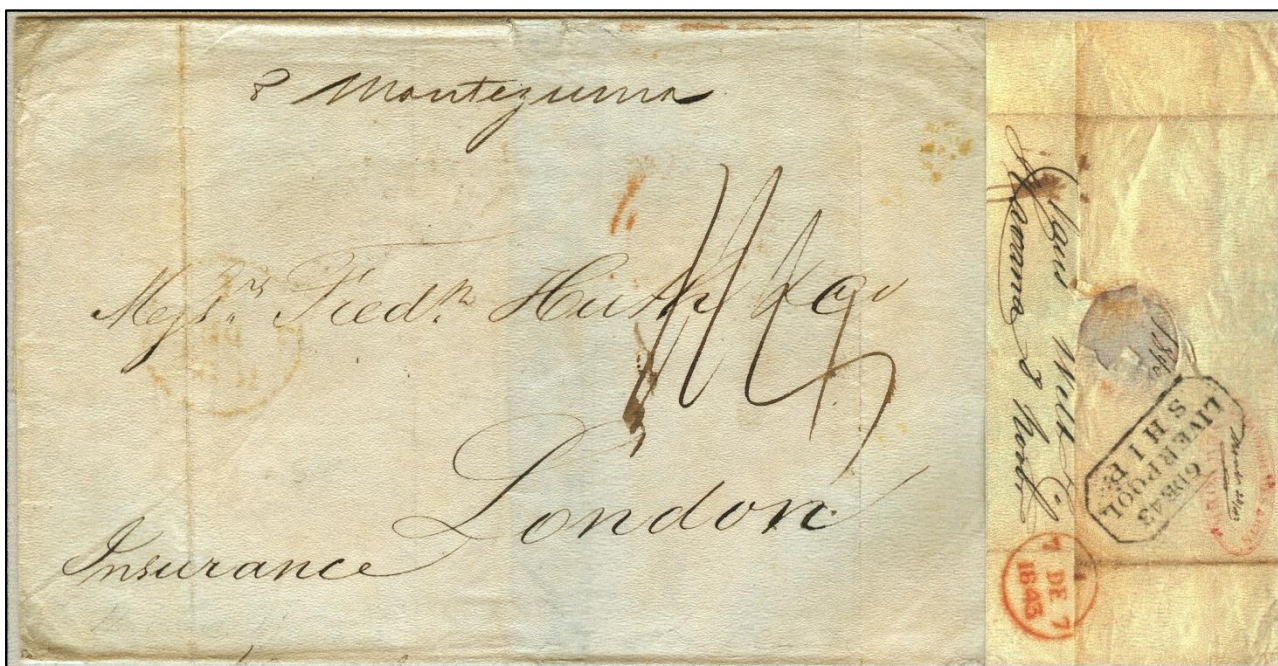 P Montezuma
Messrs Fredk Huth & Co
London
Insurance
Havana 3 Novbr
LIVERPOOL
SHIP
6 DE 43
7 DE 7
1843